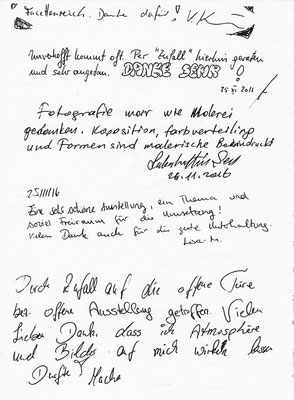 Facettenreich. Danke dafür! V.K
Unverhofft kommt oft. Per "Zufall" hierhin geraten
und sehr angetan. DANKE SEHR!
25 XI 2016
Fotografie morr wie Malerei
gedanken. Koposition, farbverteilling
und Formen sind malerische
26.11.2016
25/11/16
Eine sehr schöne Ausstellung, ein Thema und
soviel Freiraum für die Umsetzung!
Vielen Dank auch für die gute Unterhaltung.
Lisa M.
Durch Zufall auf die offene Türe
bzw. offene Ausstellung getroffen. Vielen
lieben Dank, dass ich Atmosphäre
und Bilder auf mich wirken lassen
Durfte!